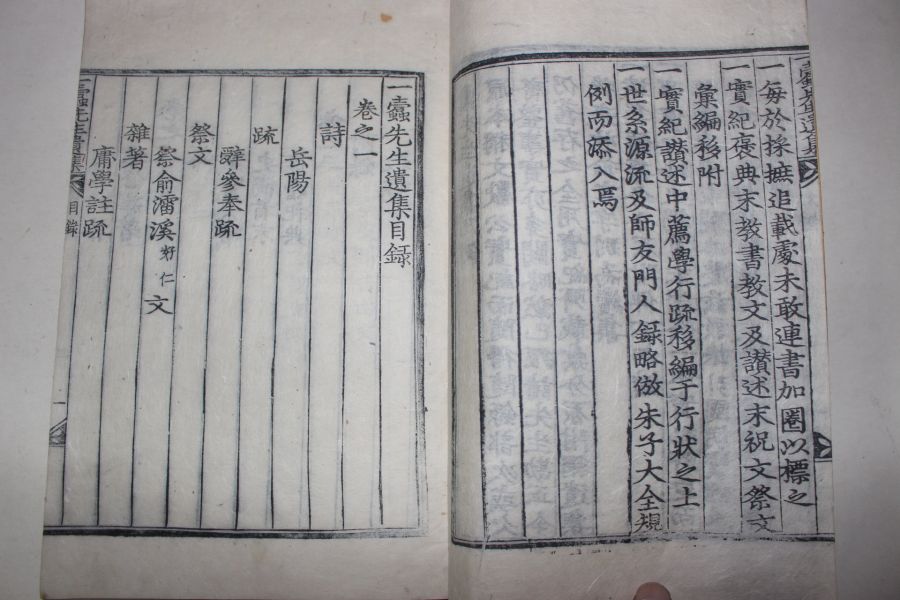 一每於採摭追載處未敢連書加圈以標之
一實紀褒典末教書教文及讃述末祝文祭文
彙編移附
一實紀讃述中薦學行疏移編于行狀之上
一世系源流及師友門人録略倣朱子大全規
例而添入焉
一蠹先生遺集目録
卷之一
詩
岳陽
疏
辭參奉疏
祭文
祭俞㵢溪好仁文
雜著
庸學註疏
一蠹先生遺集 目録 一